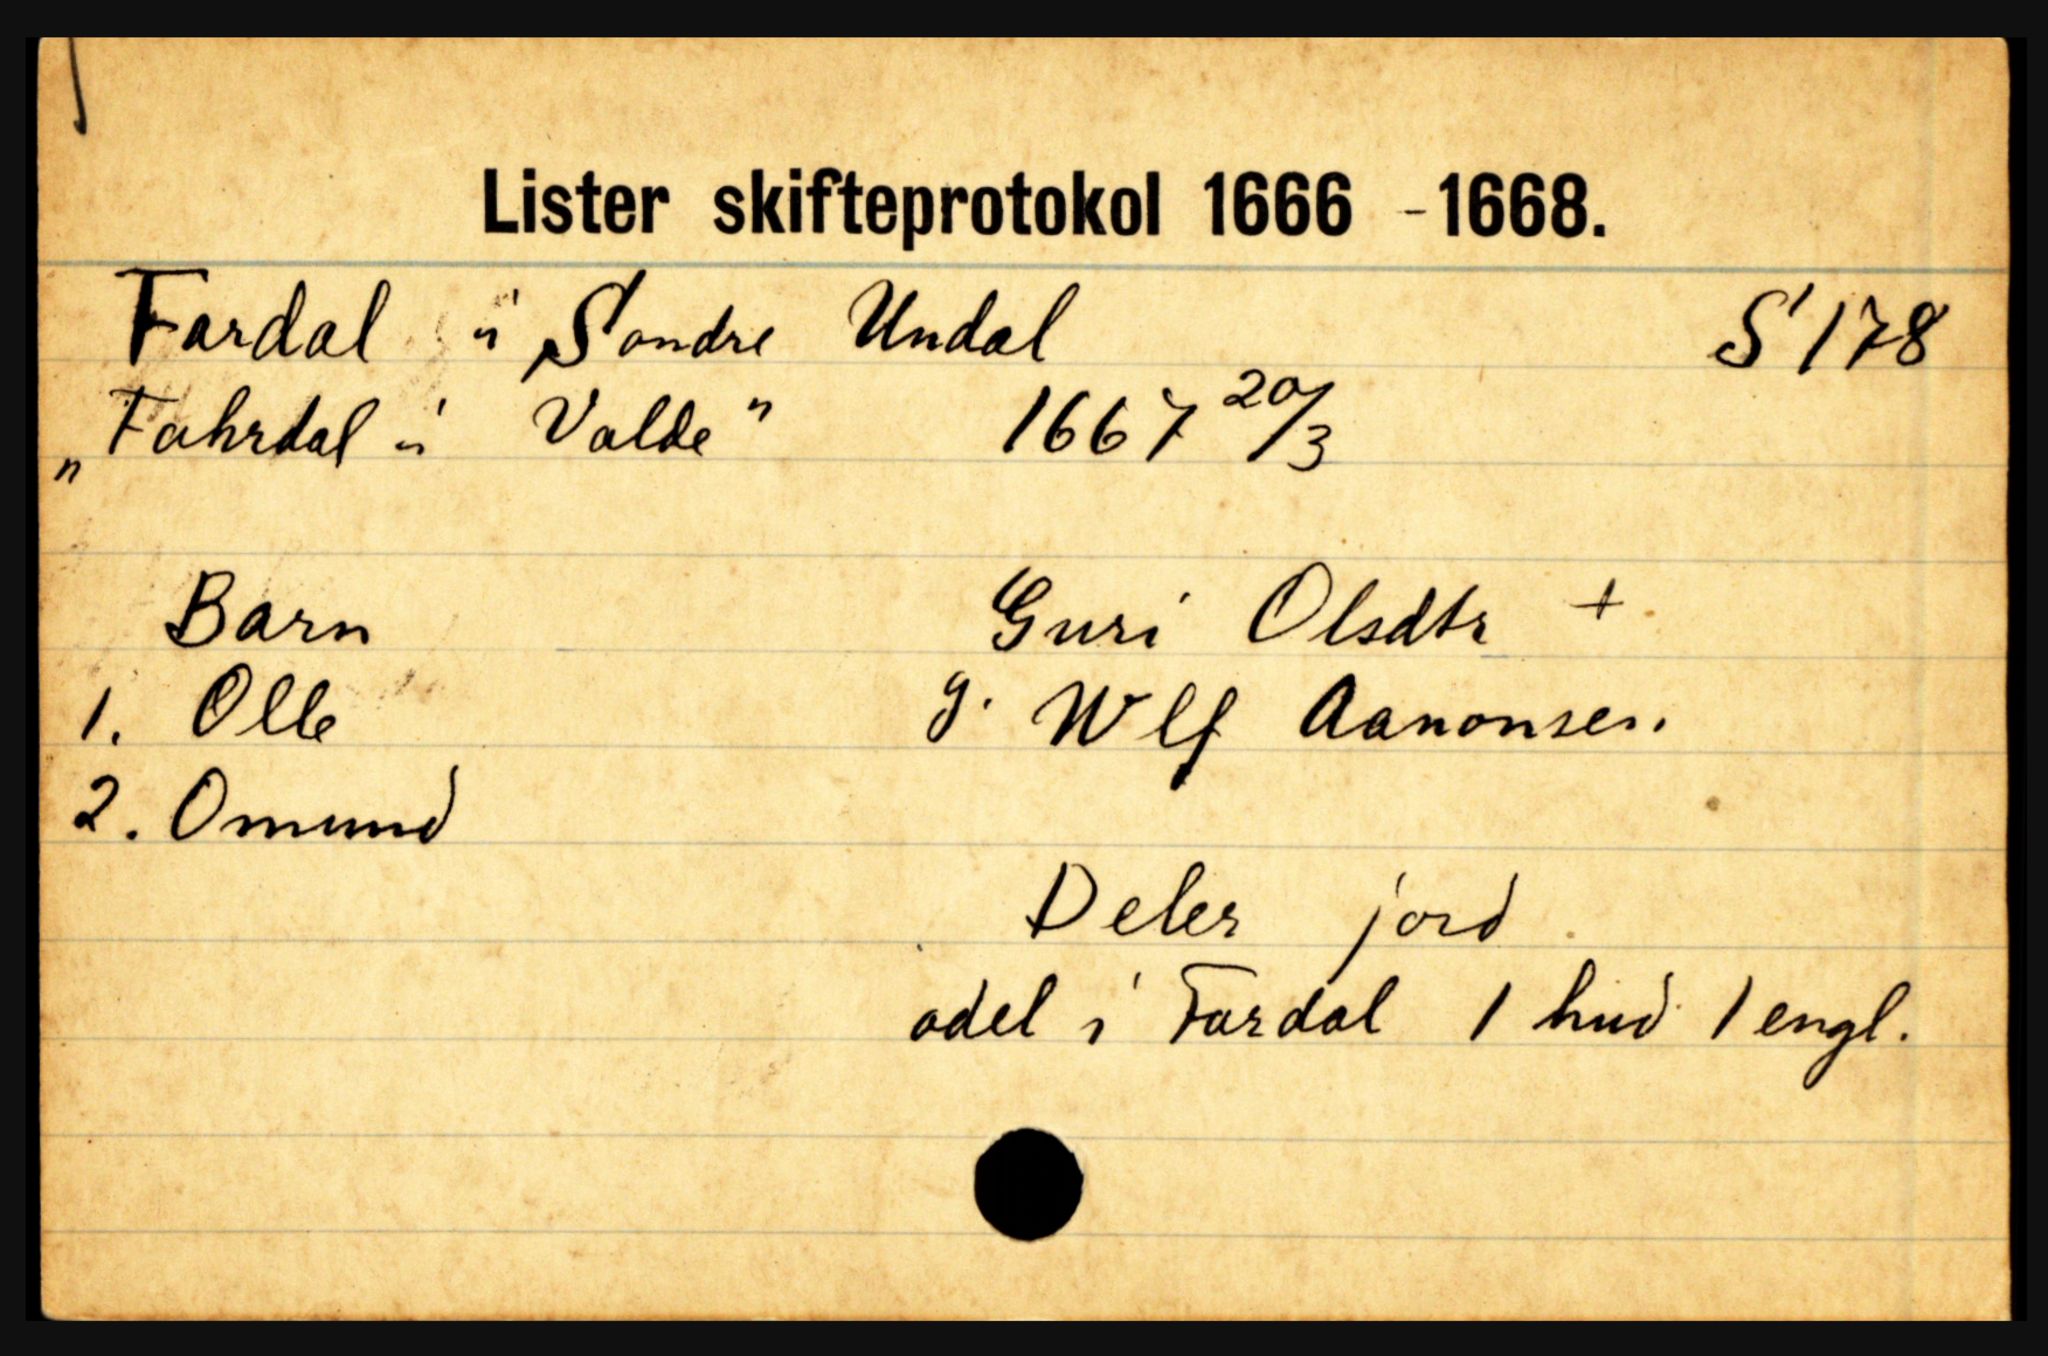 Lister skifteprotokol 1666 - 1668.
Fardal i Søndre Undal S 178
"Fahrdal i Valde" 1667 20/3
Barn Guri Olsdtr +
1. Olle g. Wlf Aanonsen.
2. Omund
Deler jord
odel i Fardal 1 hud 1 engl.